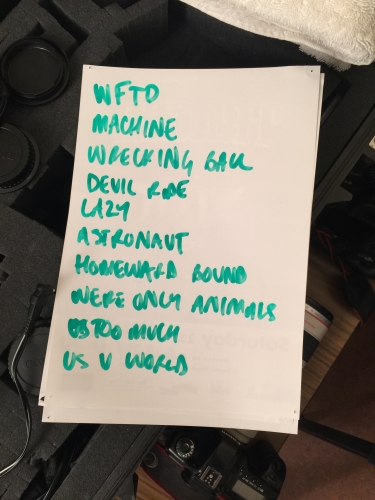 WFTD
MACHINE
WRECKING BALL
DEVIL RIDE
LAZY
ASTRONAUT
HOMEWARD BOUND
WERE ONLY ANIMALS
TOO MUCH
US V WORLD
Saturday